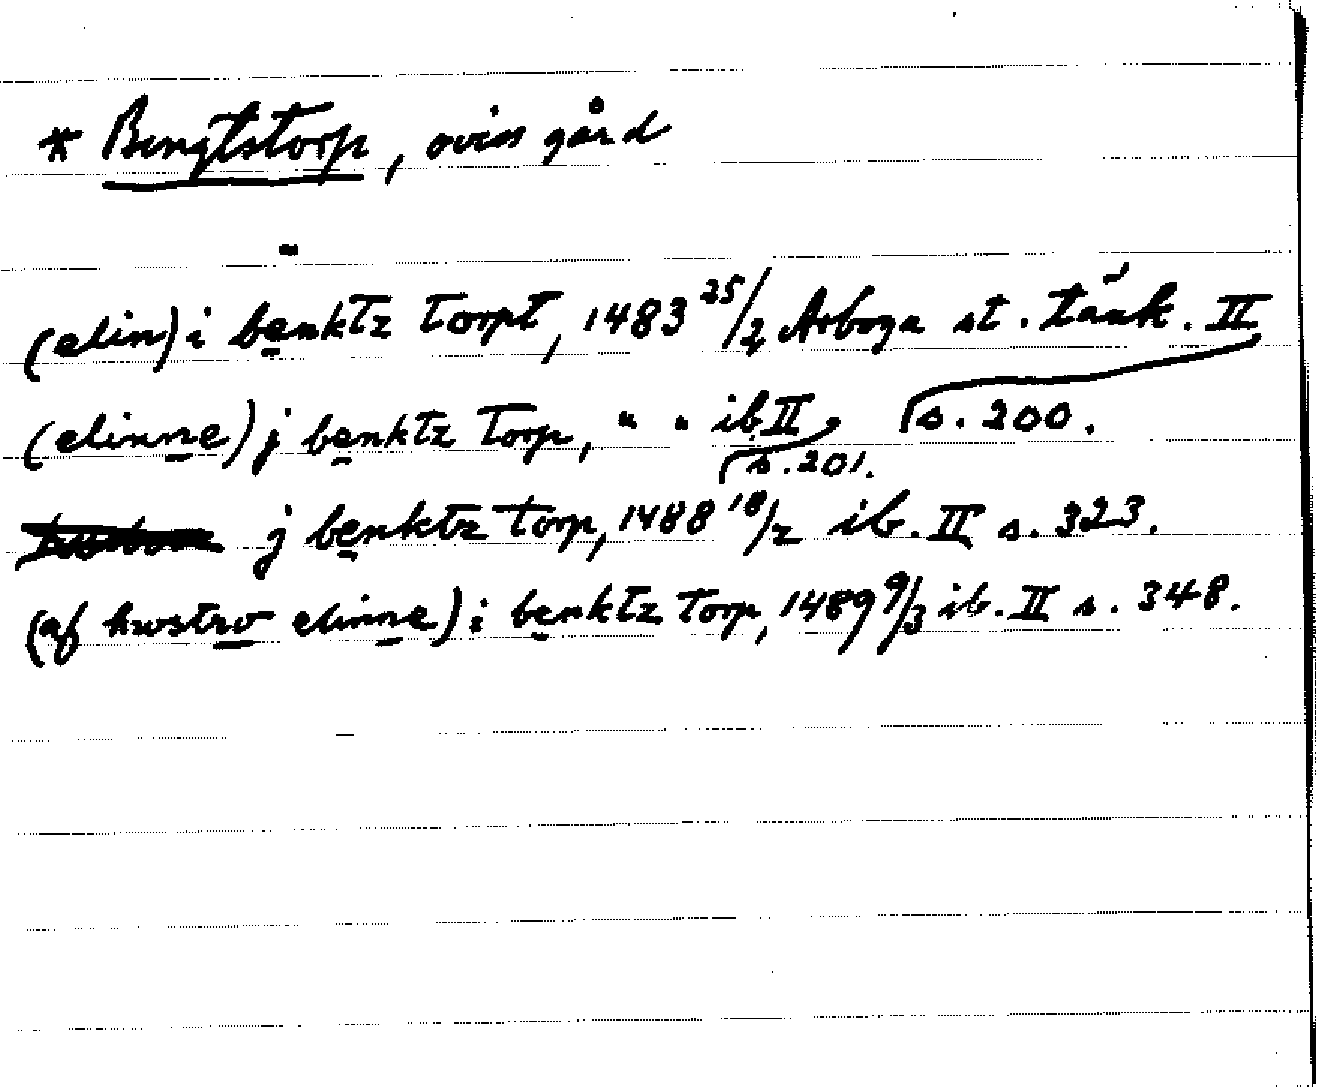 * Bengtstorp, oviss gård
(elin) i benktz torpt, 1483 25/2 Arboga st. tänk. II
s. 200.
(elinne) j benktz torp, " " ib. II
s. 201.
j benktz torp, 1488 18/2 ib. II s. 323.
(af hwstro elinne) i benktz torp, 1489 9/3 ib. II s. 348.